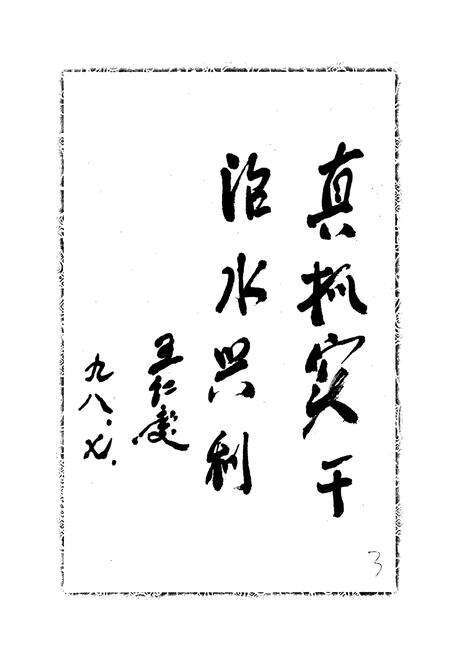 真抓实干
治水兴利
王仁
九八.七.
3